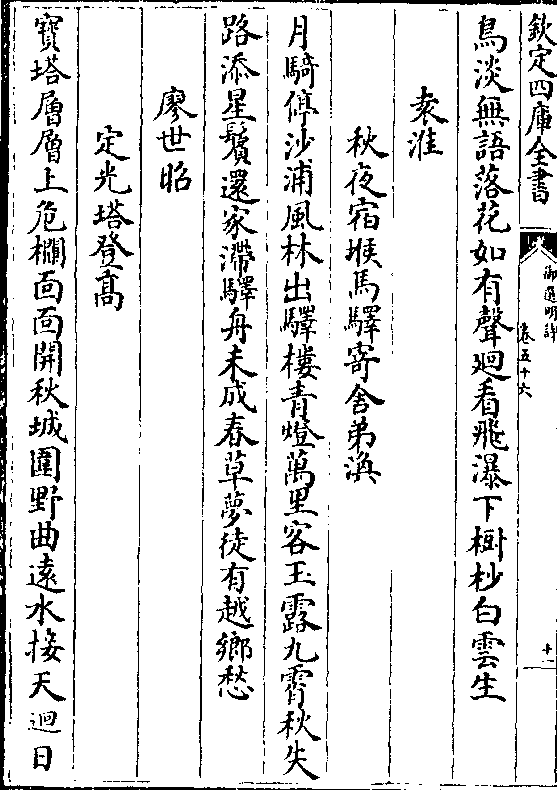 欽定四庫全書
御選明詩
卷五十六
十一
鳥淡無語落花如有聲廻看飛瀑下樹杪白雲生
袁淮
秋夜宿堠馬驛寄舍弟渙
月騎停沙浦風林出驛樓青燈萬里客玉露九霄秋失
路添星鬢還家滯驛舟未成春草夢徒有越鄉愁
廖世昭
定光塔登高
寶塔層層上危欄面面開秋城圍野曲遠水接天迴日